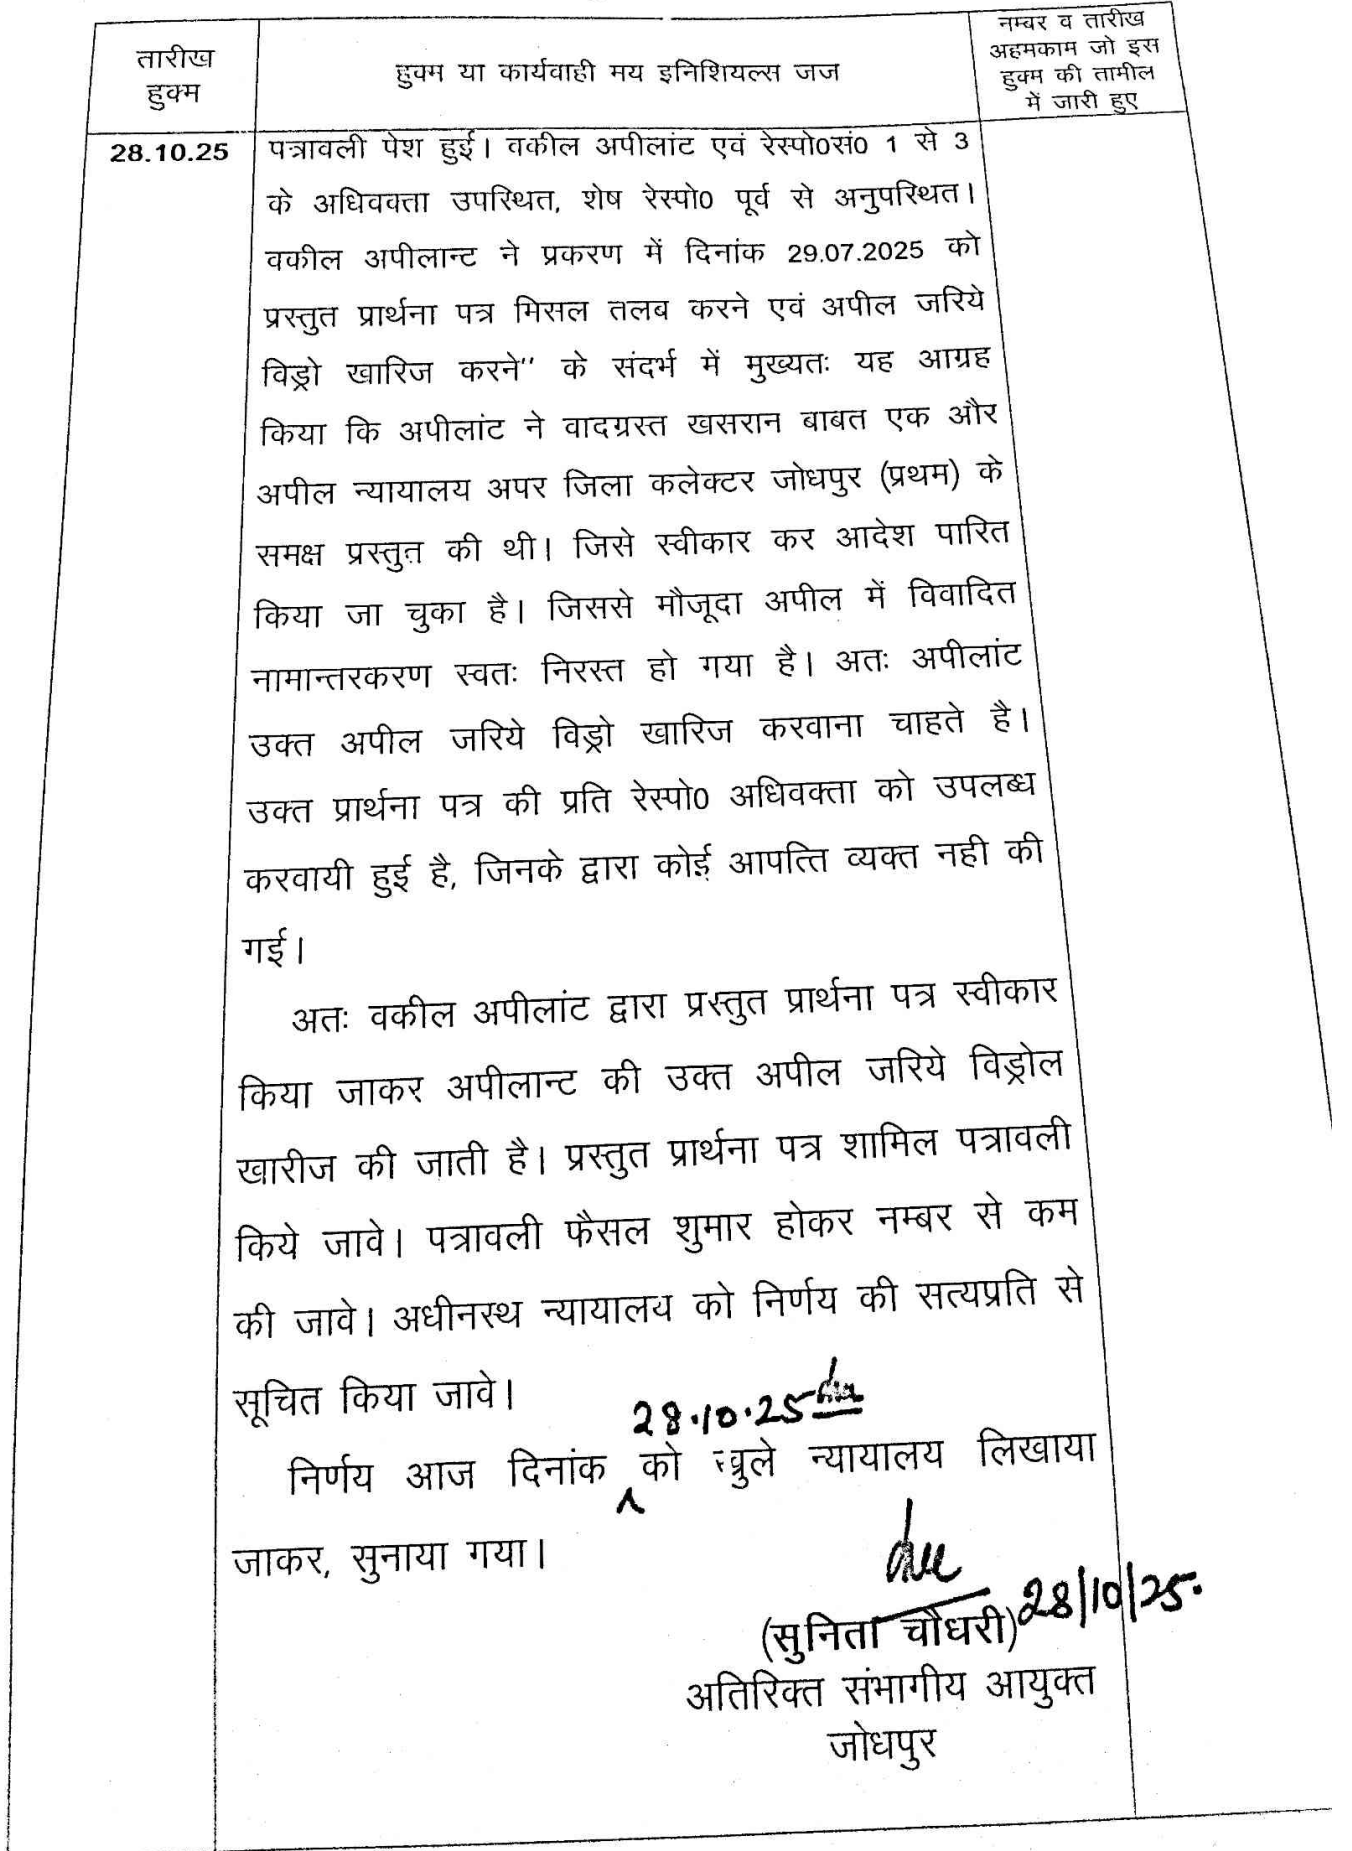 तारीख
हुक्म
हुक्म या कार्यवाही मय इनिशियल्स जज
नम्बर व तारीख
अहमकाम जो इस
हुक्म की तामील
में जारी हुए
28.10.25
पत्रावली पेश हुई। वकील अपीलांट एवं रेस्पो0सं0 1 से 3
के अधिवक्ता उपस्थित, शेष रेस्पो0 पूर्व से अनुपस्थित।
वकील अपीलान्ट ने प्रकरण में दिनांक 29.07.2025 को
प्रस्तुत प्रार्थना पत्र मिसल तलब करने एवं अपील जरिये
विड्रो खारिज करने'' के संदर्भ में मुख्यतः यह आग्रह
किया कि अपीलांट ने वादग्रस्त खसरान बाबत एक और
अपील न्यायालय अपर जिला कलेक्टर जोधपुर (प्रथम) के
समक्ष प्रस्तुत की थी। जिसे स्वीकार कर आदेश पारित
किया जा चुका है। जिससे मौजूदा अपील में विवादित
नामान्तरकरण स्वतः निरस्त हो गया है। अतः अपीलांट
उक्त अपील जरिये विड्रो खारिज करवाना चाहते है।
उक्त प्रार्थना पत्र की प्रति रेस्पो0 अधिवक्ता को उपलब्ध
करवायी हुई है, जिनके द्वारा कोई आपत्ति व्यक्त नही की
गई।
अतः वकील अपीलांट द्वारा प्रस्तुत प्रार्थना पत्र स्वीकार
किया जाकर अपीलान्ट की उक्त अपील जरिये विड्रोल
खारीज की जाती है। प्रस्तुत प्रार्थना पत्र शामिल पत्रावली
किये जावे। पत्रावली फैसल शुमार होकर नम्बर से कम
की जावे। अधीनस्थ न्यायालय को निर्णय की सत्यप्रति से
सूचित किया जावे।
28.10.25
निर्णय आज दिनांक को खुले न्यायालय लिखाया
जाकर, सुनाया गया।
28/10/25.
(सुनिता चौधरी)
अतिरिक्त संभागीय आयुक्त
जोधपुर